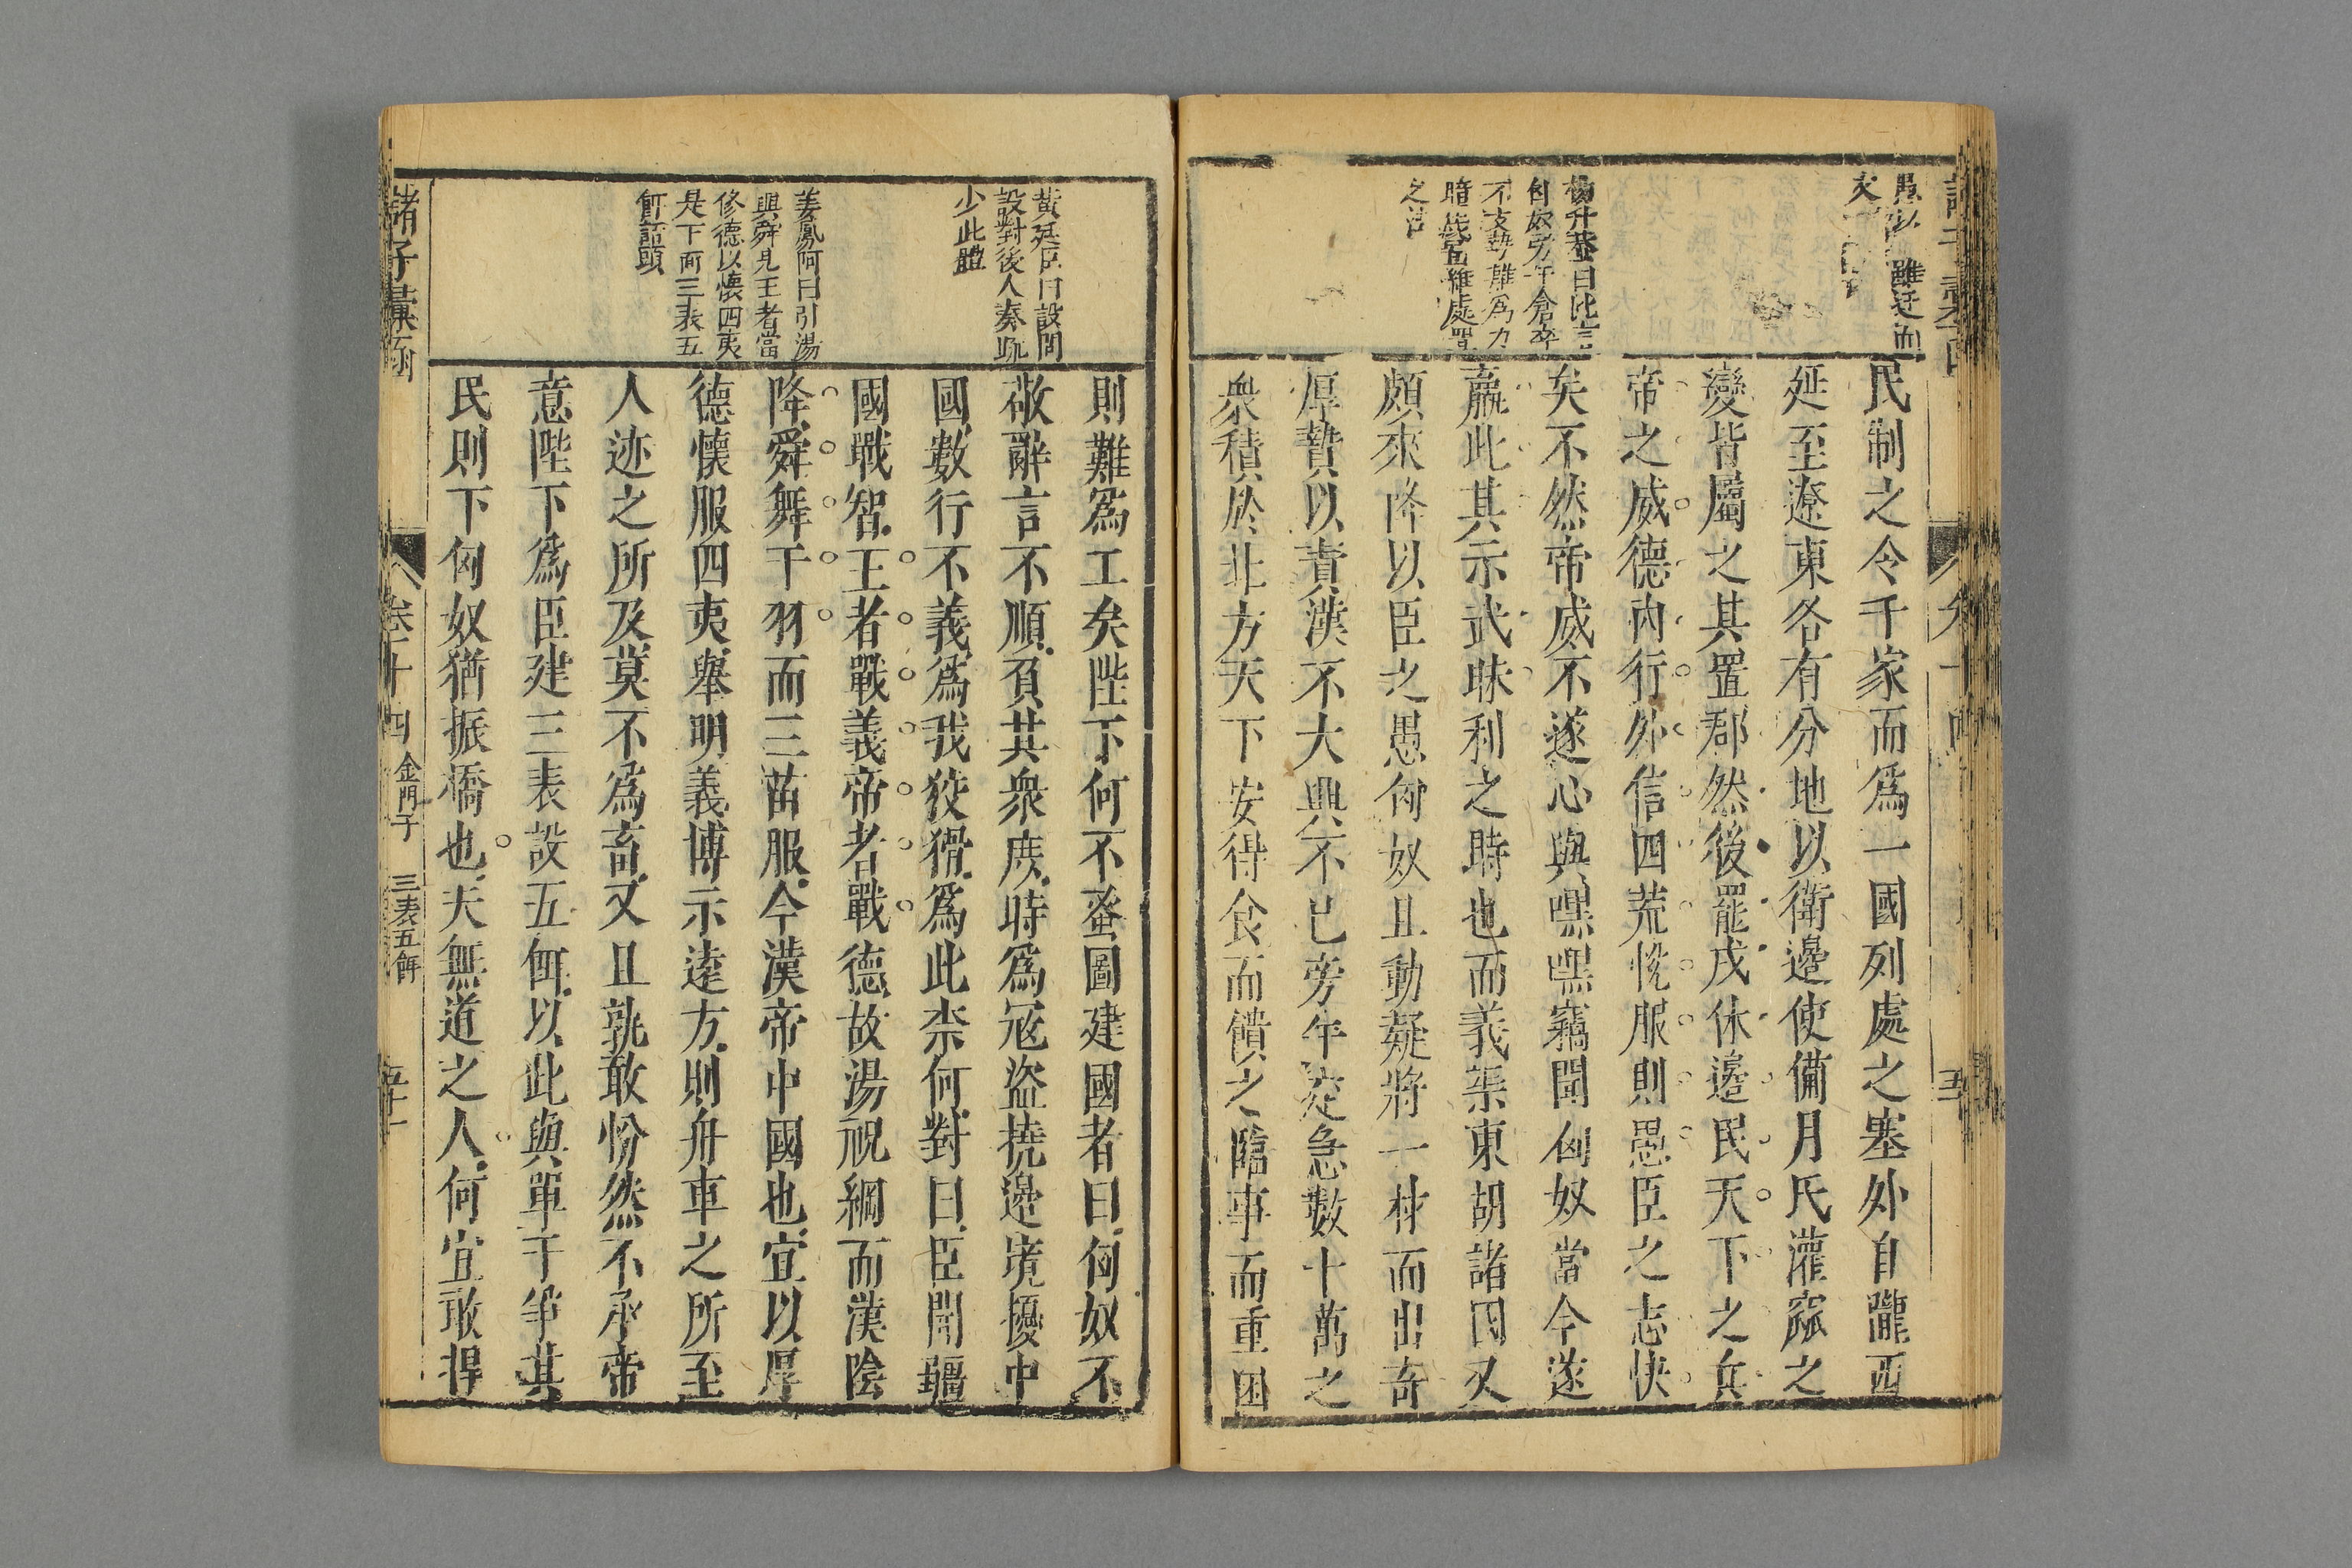 民制之令千家而爲一國列處之塞外自隴西
延至遼東各有分地以衛邊使備月氏灌窳之
變皆屬之其置郡然後罷戎休邊民天下之兵
帝之威德內行外信四荒悅服則愚臣之志快
矣不然帝威不遂心與嘿嘿竊聞匈奴當今遂
羸此其示武昧利之時也而義渠東胡諸國又
頗來降以臣之愚匈奴且動疑將一材而出奇
厚贄以責漢不大興不已旁午走急數十萬之
衆積於北方天下安得食而饋之臨事而重困
楊升菴曰此言
匈奴旁午倉卒
不支勢難爲力
則難爲工矣陛下何不蚤圖建國者曰匈奴不
敬辭言不順負其衆庶時爲冦盗撓邊境擾中
國數行不義爲我狡猾爲此柰何對曰臣聞疆
國戰智王者戰義帝者戰德故湯祝網而漢陰
降舜舞干羽而三苗服今漢帝中國也宜以厚
德懷服四夷舉明義博示遠方則舟車之所至
人迹之所及莫不爲畜又且孰敢忿然不承帝
意陛下爲臣建三表設五餌以此與單于爭其
民則下匈奴猶振槁也夫無道之人何宜敢捍
黄廷臣曰設問
設對後人奏疏
少此體
姜鳳阿曰引湯
與舜見王者當
修德以懷四夷
是下面三表五
餌話頭
諸子彙函
卷之十四
金門子
三表五餌